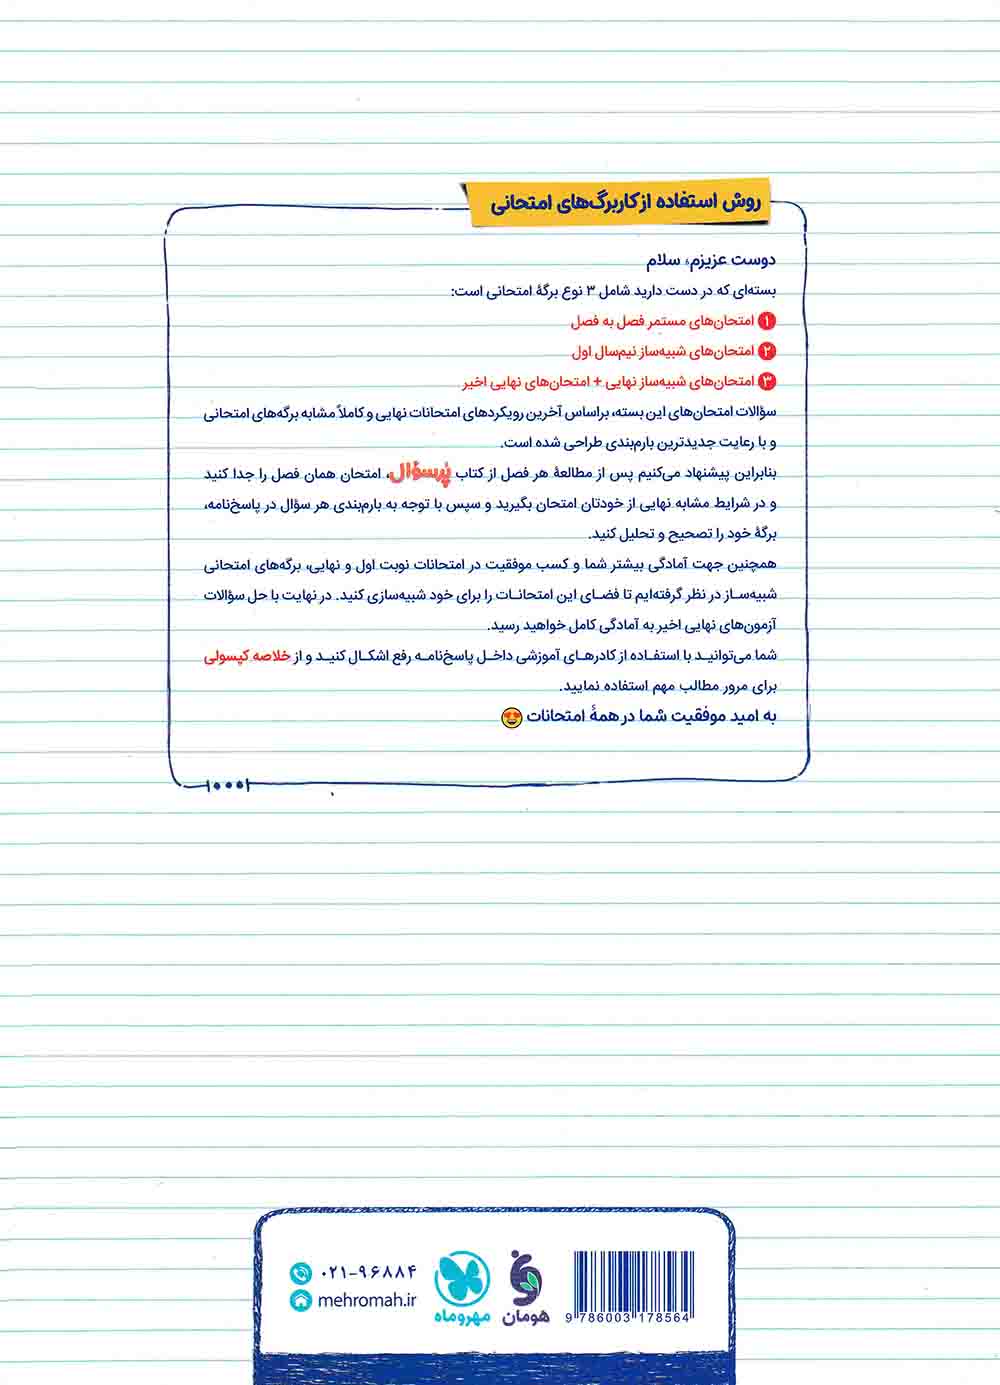 روش استفاده از کاربرگ‌های امتحانی
دوست عزیزم، سلام
بسته‌ای که در دست دارید شامل ۳ نوع برگهٔ امتحانی است:
۱ امتحان‌های مستمر فصل به فصل
۲ امتحان‌های شبیه‌ساز نیم‌سال اول
۳ امتحان‌های شبیه‌ساز نهایی + امتحان‌های نهایی اخیر
سؤالات امتحان‌های این بسته، براساس آخرین رویکردهای امتحانات نهایی و کاملاً مشابه برگه‌های امتحانی
و با رعایت جدیدترین بارم‌بندی طراحی شده است.
بنابراین پیشنهاد می‌کنیم پس از مطالعهٔ هر فصل از کتاب پُرسؤال، امتحان همان فصل را جدا کنید
و در شرایط مشابه نهایی از خودتان امتحان بگیرید و سپس با توجه به بارم‌بندی هر سؤال در پاسخ‌نامه،
برگهٔ خود را تصحیح و تحلیل کنید.
همچنین جهت آمادگی بیشتر شما و کسب موفقیت در امتحانات نوبت اول و نهایی، برگه‌های امتحانی
شبیه‌سـاز در نظر گرفته‌ایم تا فضـای این امتحانـات را برای خود شبیه‌سازی کنید. در نهایت با حل سؤالات
آزمون‌های نهایی اخیر به آمادگی کامل خواهید رسید.
شما می‌توانیـد با استفـاده از کادرهـای آموزشی داخـل پاسخ‌نامـه رفع اشکـال کنیـد و از خلاصه کپسولی
برای مرور مطالب مهم استفاده نمایید.
به امید موفقیت شما در همهٔ امتحانات 😍
۰۲۱-۹۶۸۸۴
mehromah.ir
مهروماه
هومان
9 786003 178564